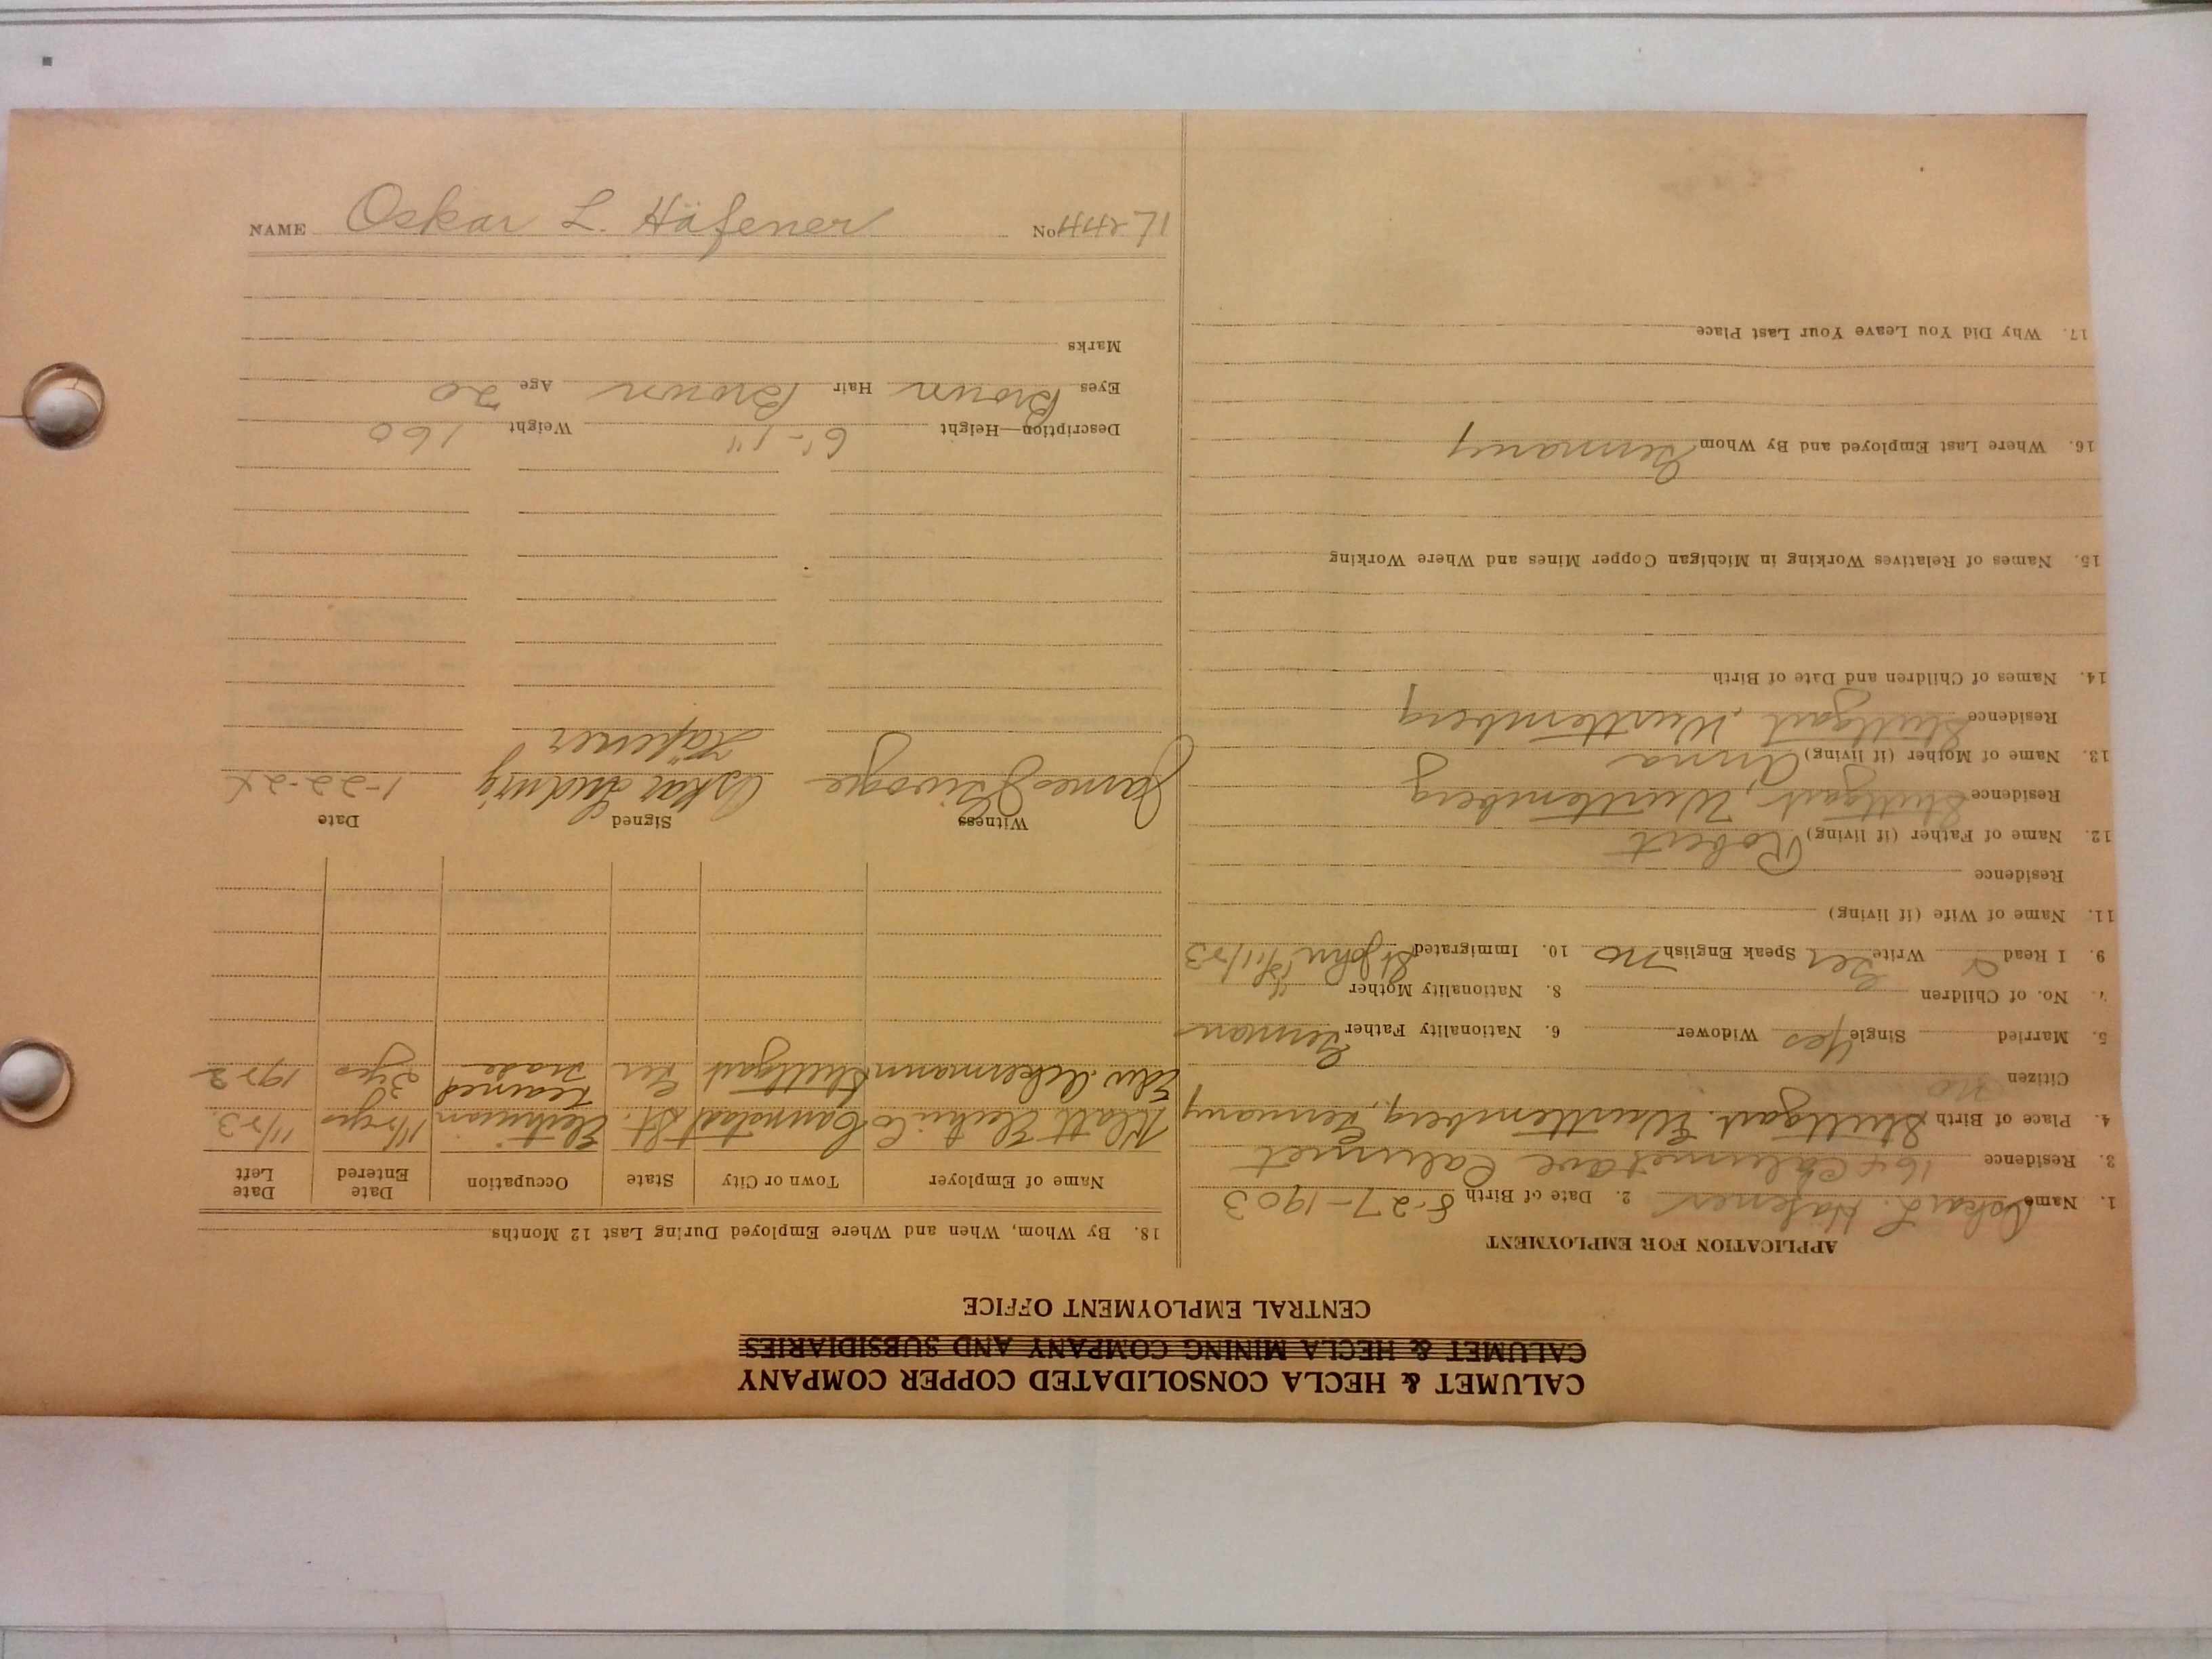 CALUMET & HECLA CONSOLIDATED COPPER COMPANY
CALUMET & HECLA MINING COMPANY AND SUBSIDIARIES
CENTRAL EMPLOYMENT OFFICE
APPLICATION FOR EMPLOYMENT
1. Name Oskar L. Häfener 2. Date of Birth 8-27-1903
3. Residence 164 Calumet ave Calumet
4. Place of Birth Stuttgart Wurttemberg, Germany
Citizen no
5. Married Single Yes Widower 6. Nationality Father German
7. No. of Children 8. Nationality Mother "
9. I Read Write Ger Speak English no 10. Immigrated St John 11/23
11. Name of Wife (if living)
Residence
12. Name of Father (if living) Robert
Residence Stuttgart, Wurttemberg
13. Name of Mother (if living) Anna
Residence Stuttgart, Wurttemberg
14. Names of Children and Date of Birth
15. Names of Relatives Working in Michigan Copper Mines and Where Working
16. Where Last Employed and By Whom Germany
17. Why Did You Leave Your Last Place
18. By Whom, When and Where Employed During Last 12 Months
Name of Employer Town or City State Occupation Date Entered Date Left
Klatt Electric Co Cannstadt St. Electrician 1 1/2 yrs 11/23.
Edw. Ackermann Stuttgart Ger Learned trade 3 yrs 1922
Witness Signed Date
James Oskar Ludwig Häfener 1-22-24
Description—Height 6'-1" Weight 160
Eyes Brown Hair Brown Age 20
Marks
NAME Oskar L. Häfener No 44271